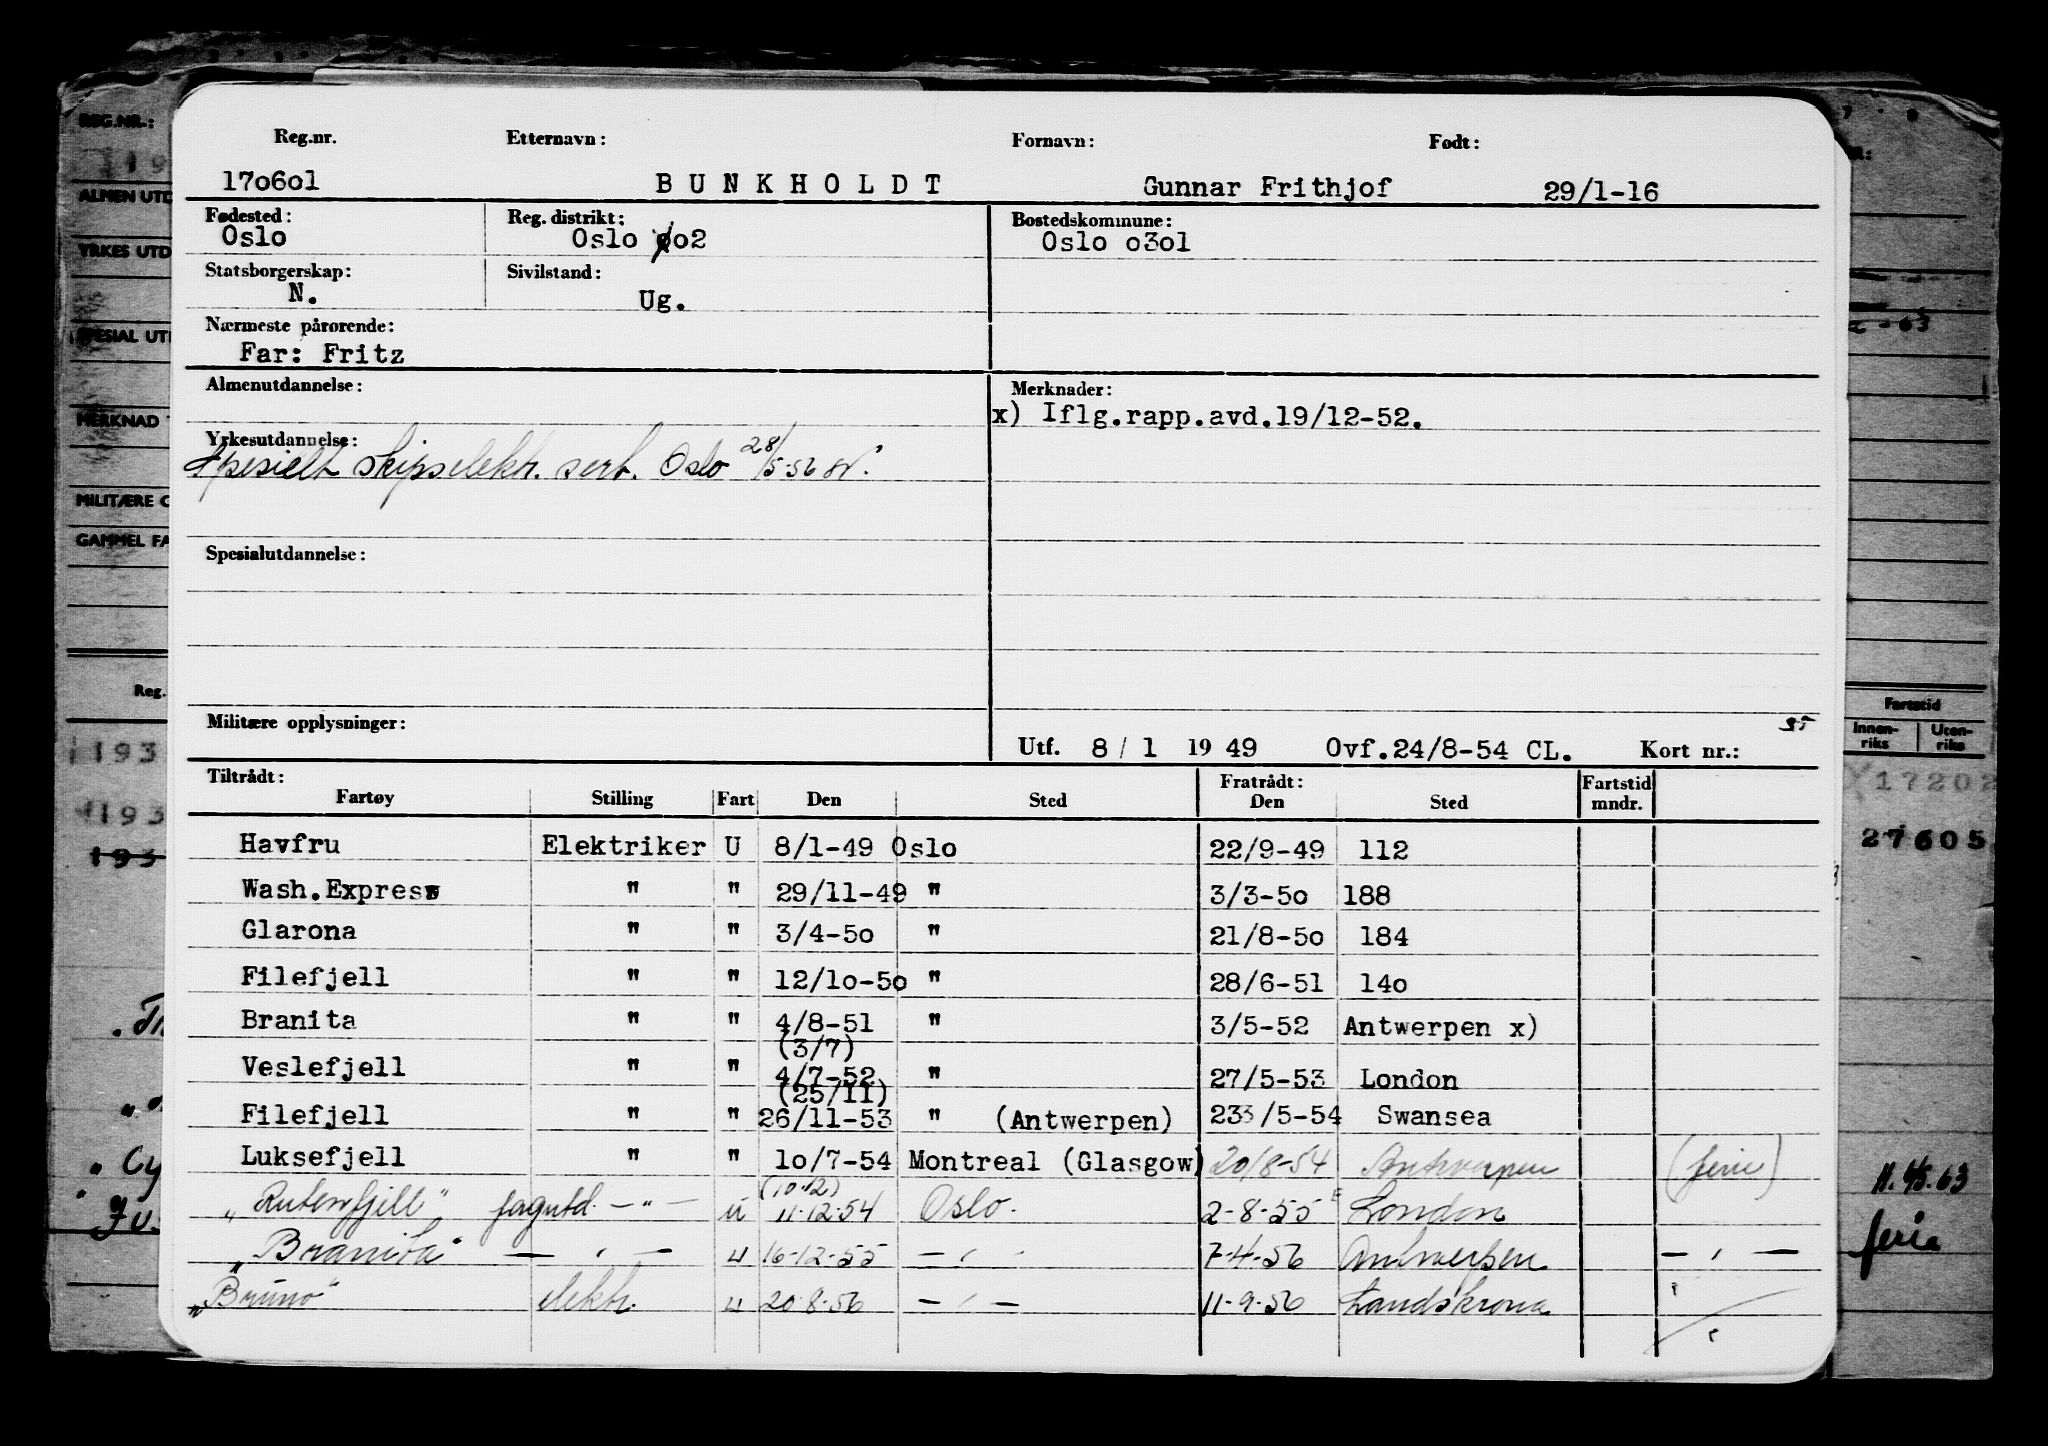 Reg.nr. Etternavn: Fornavn: Født:
17o6o1 B U N K H O L D T Gunnar Frithjof 29/1-16
Fødested: Reg. distrikt: Bostedskommune:
Oslo Oslo o2 Oslo o3o1
Statsborgerskap: Sivilstand:
N. Ug.
Nærmeste pårørende:
Far: Fritz
Almenutdannelse: Merknader:
x) Iflg.rapp.avd.19/12-52.
Yrkesutdannelse:
Spesielt skipselektr. sert. Oslo 28/5-56
Spesialutdannelse:
Militære opplysninger:
Utf. 8 / 1 19 49 Ovf.24/8-54 CL. Kort nr.:
Tiltrådt: Fratrådt: Fartstid
Fartøy Stilling Fart Den Sted Den Sted mndr.
Havfru Elektriker U 8/1-49 Oslo 22/9-49 112
Wash.Express " " 29/11-49 " 3/3-5o 188
Glarona " " 3/4-5o " 21/8-5o 184
Filefjell " " 12/1o-5o " 28/6-51 14o
Branita " " 4/8-51 " 3/5-52 Antwerpen x)
(3/7)
Veslefjell " " 4/7-52 " 27/5-53 London
(25/11)
Filefjell " " 26/11-53 " (Antwerpen) 23/5-54 Swansea
Luksefjell " " 1o/7-54 Montreal (Glasgow) 20/8-54 Antwerpen (ferie)
(10.12)
"Rutenfjell" fagutd. — " — u 11.12.54 Oslo. 2-8-55 London
"Branita" — " — u 16-12-55 — " — 7-4-56 Antwerpen — " —
"Bruno" elektr. u 20.8.56 — " — 11-9-56 Landskrona
REG.NR.:
ALMEN UTD
YRKES UTD
SPESIAL UT
MERKNAD
MILITÆRE
GAMMEL FA
Reg.
193
193
193
Fartstid
Innen-riks Uten-riks
17202
27605
ferie